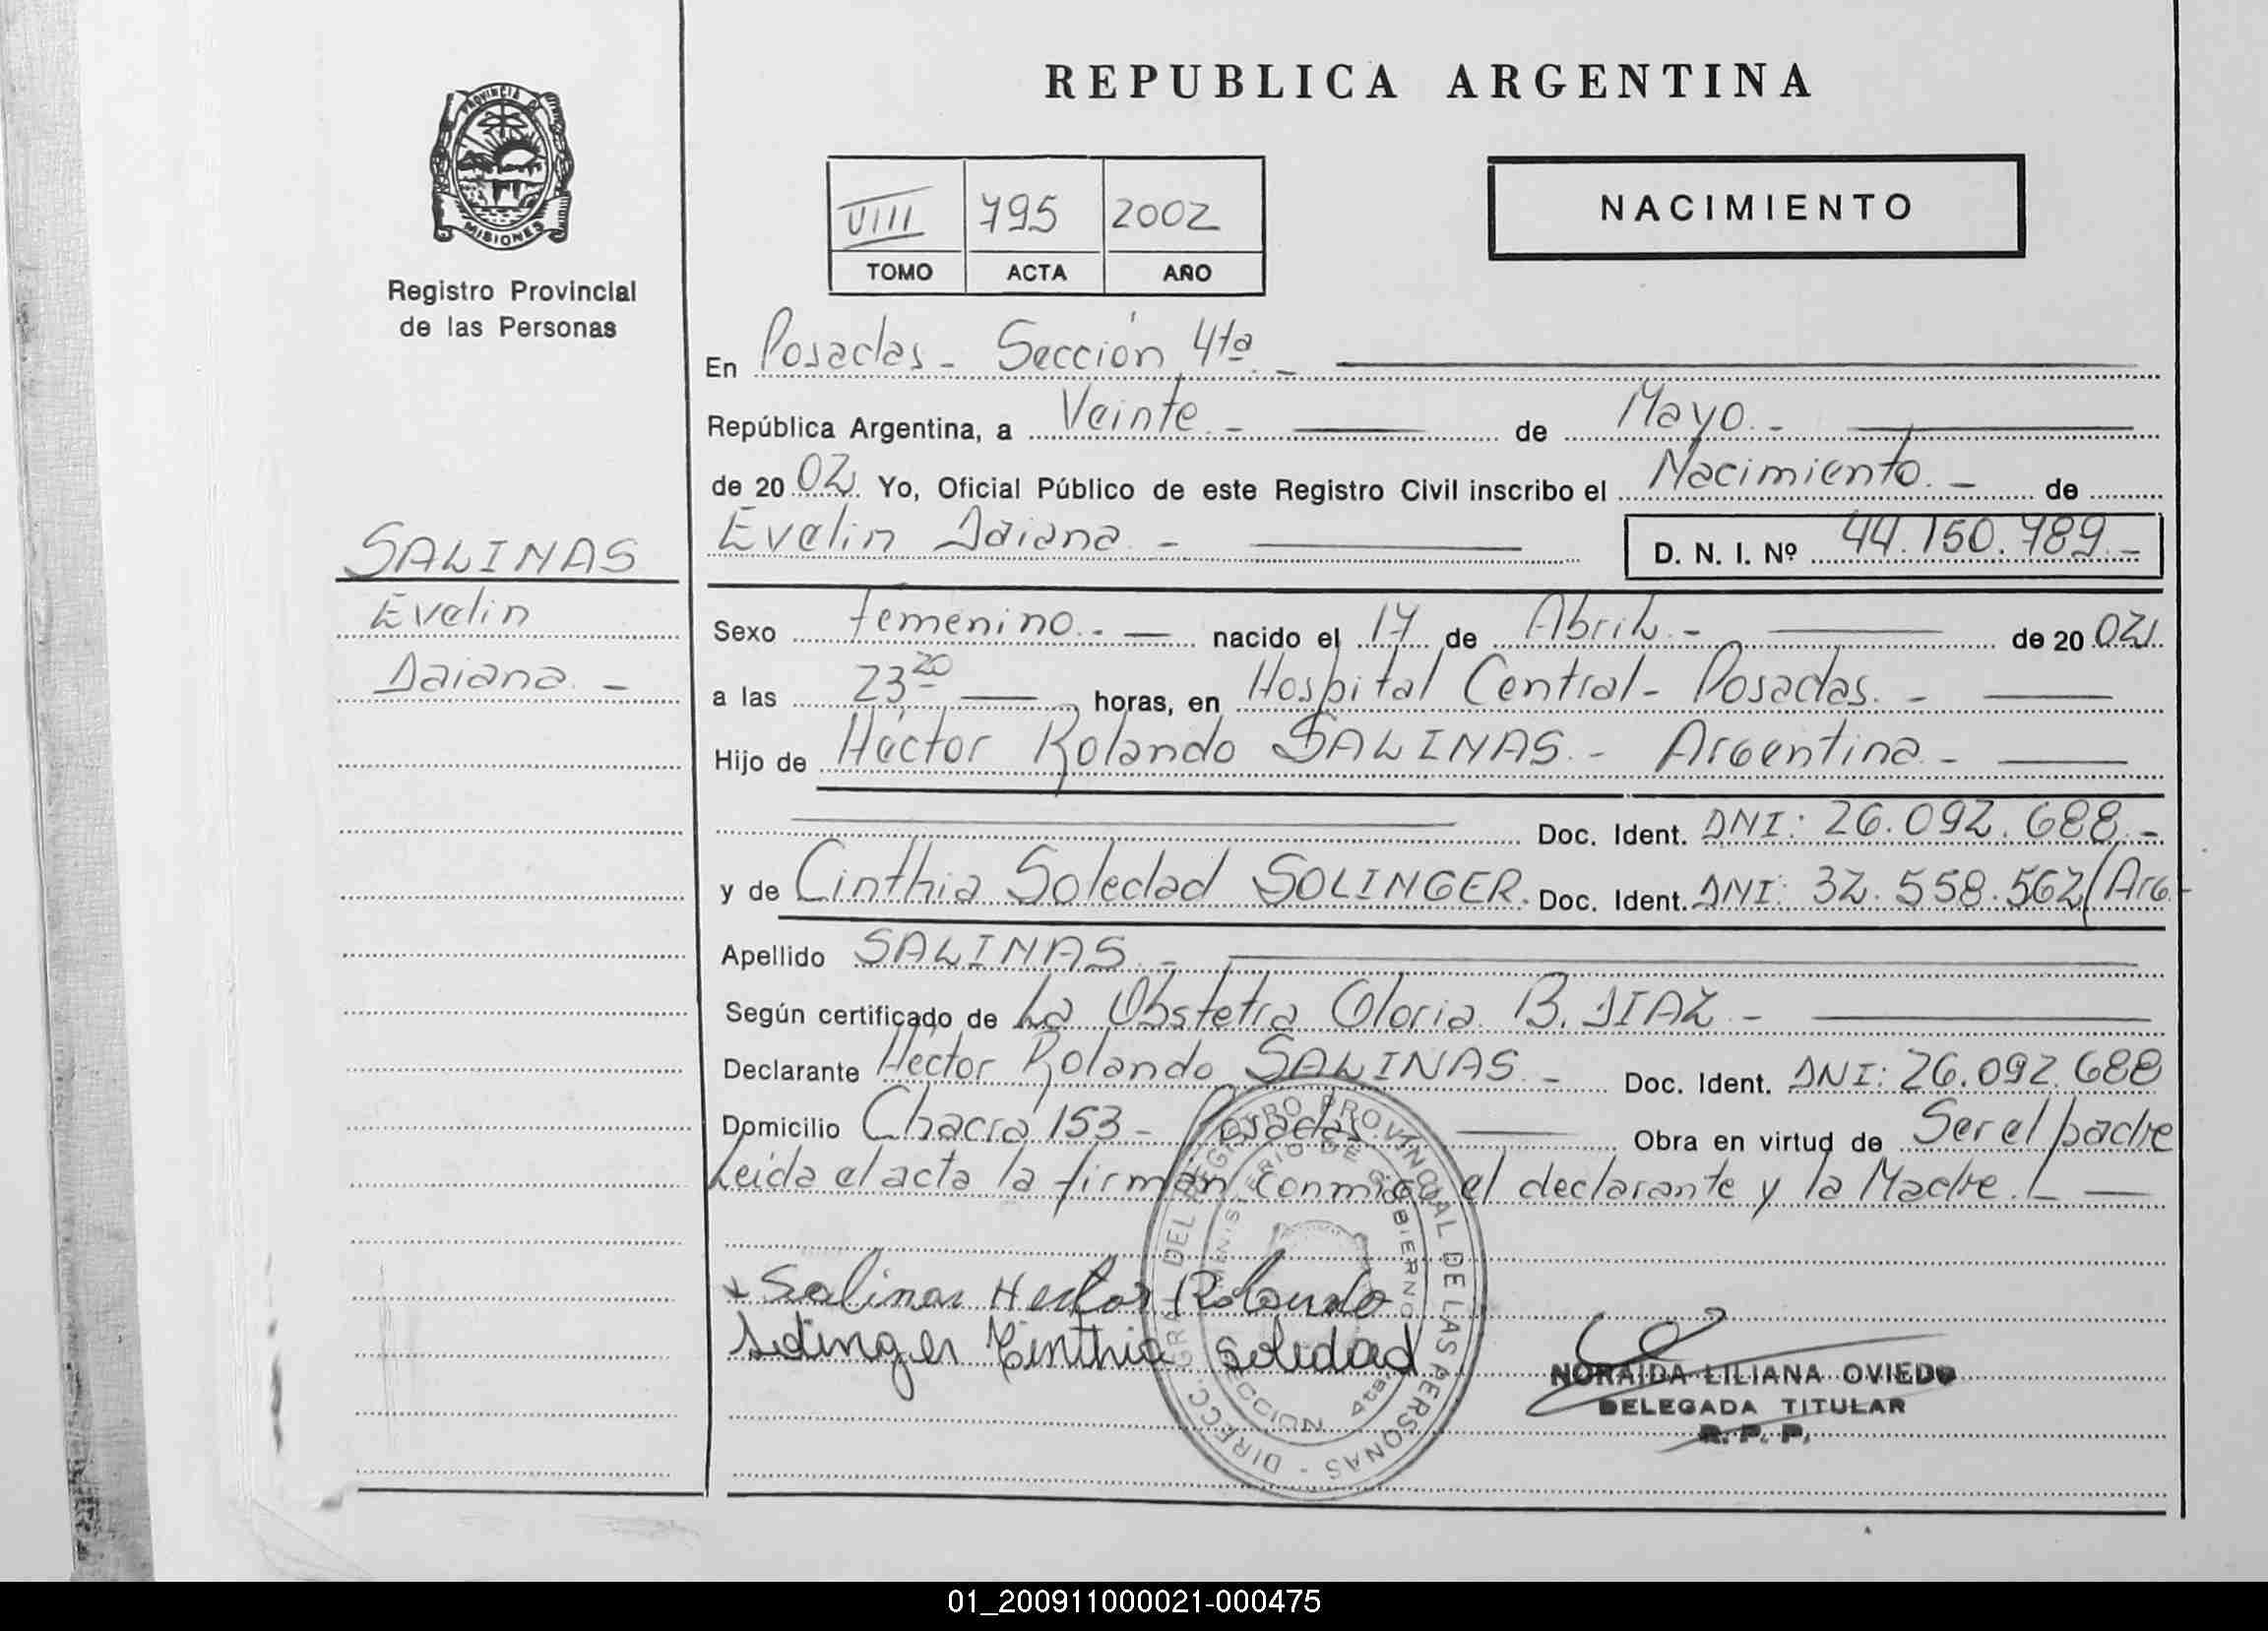 REPUBLICA ARGENTINA
PROVINCIA DE
MISIONES
Registro Provincial
de las Personas
VIII 795 2002
TOMO ACTA AÑO
NACIMIENTO
En Posadas - Sección 4ta. -
República Argentina, a Veinte. - de Mayo. -
de 20 02. Yo, Oficial Público de este Registro Civil inscribo el Nacimiento. - de
Evelin Daiana - D. N. I. Nº 44.150.789.-
SALINAS
Evelin
Daiana. -
Sexo femenino. - nacido el 17 de Abril. - de 20 02.
a las 23 20 horas, en Hospital Central - Posadas. -
Hijo de Héctor Rolando SALINAS. - Argentina. -
Doc. Ident. DNI: 26.092.688.-
y de Cinthia Soledad SOLINGER. Doc. Ident. DNI: 32.558.562/Arg.-
Apellido SALINAS. -
Según certificado de La Obstetra Gloria B. DIAZ -
Declarante Héctor Rolando SALINAS. - Doc. Ident. DNI: 26.092.688
Domicilio Chacra 153 - Posadas Obra en virtud de Ser el padre
Leida el acta la firman conmigo el declarante y la Madre.
+ Salinas Hector Rolando
Solinger Cinthia Soledad
DIRECC. GRAL. DEL REGISTRO PROVINCIAL DE LAS PERSONAS -
MINISTERIO DE GOBIERNO
SECCION 4ta.
NORAIDA LILIANA OVIEDO
DELEGADA TITULAR
R. P. P.
01_200911000021-000475